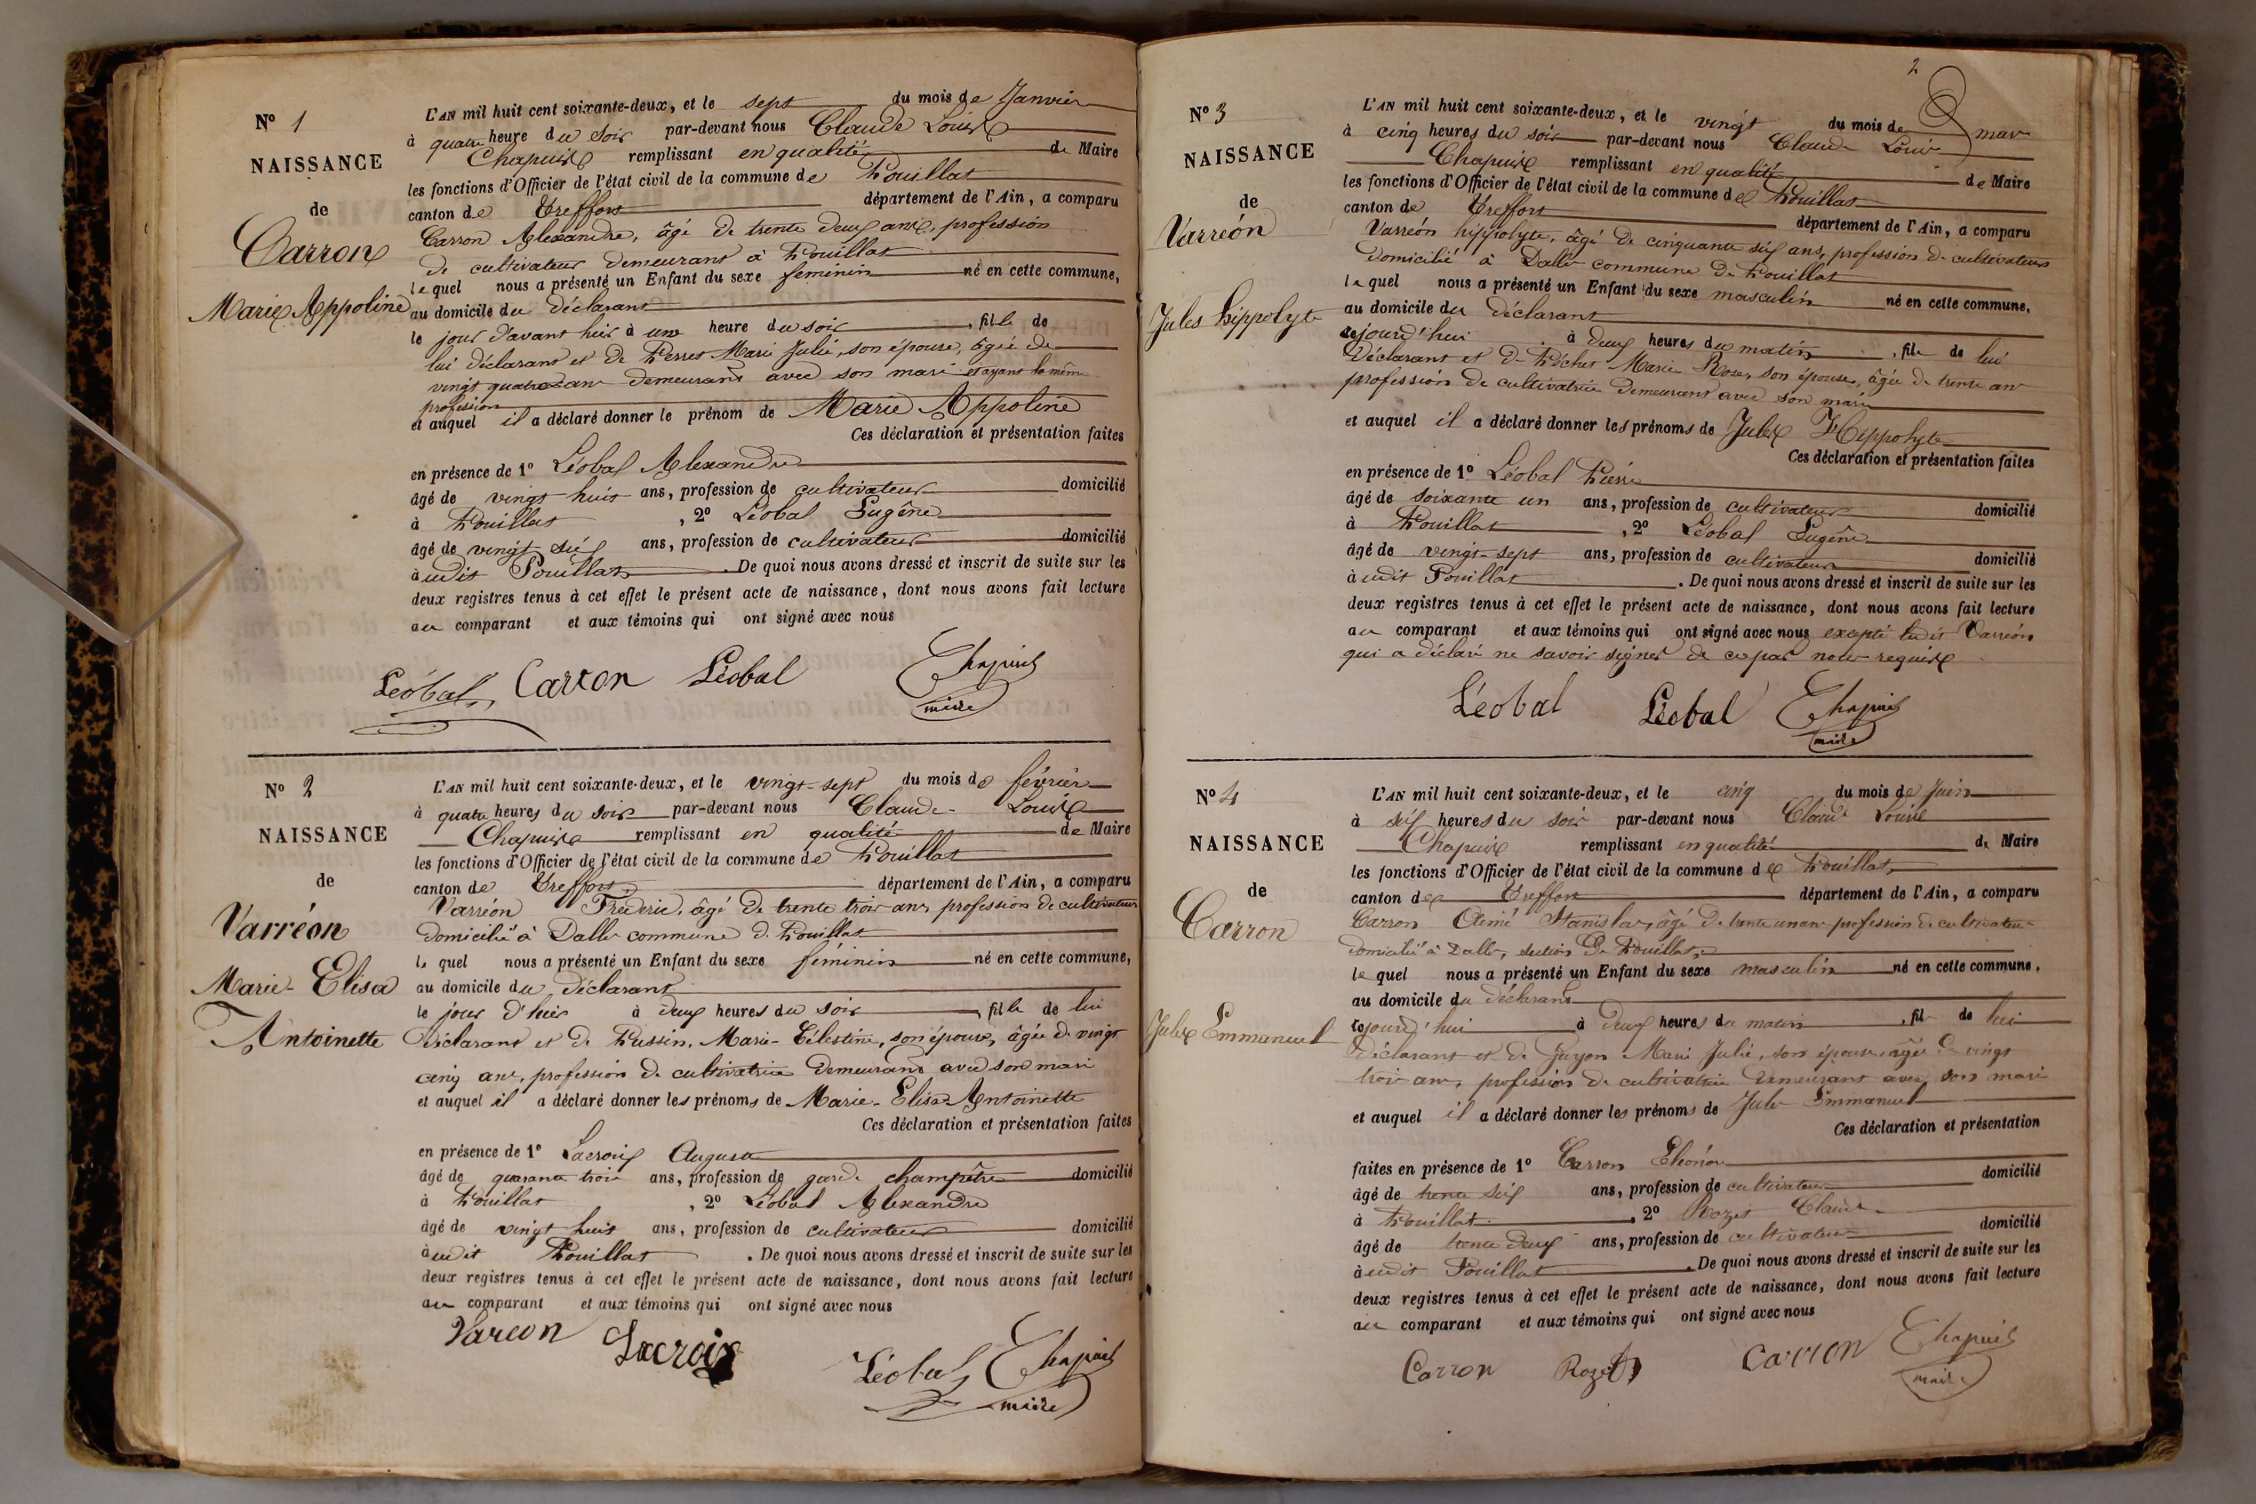 N° 1
NAISSANCE
de
Carron
Marie Appoline
L'AN mil huit cent soixante-deux, et le sept du mois de Janvier
à quatre heure du soir par-devant nous Claude Louis
Chapuis remplissant en qualité de Maire
les fonctions d'Officier de l'état civil de la commune de Pouillat
canton de Treffort département de l'Ain, a comparu
Carron Alexandre, âgé de trente deux ans, profession
de cultivateur demeurant à Pouillat
lequel nous a présenté un Enfant du sexe feminin né en cette commune,
au domicile du déclarant
le jour d'avant hier à une heure du soir, fille de
lui déclarant et de Perret Marie Julie, son épouse, âgée de
vingt quatre ans demeurant avec son mari et ayant la même
profession
et auquel il a déclaré donner le prénom de Marie Appoline
Ces déclaration et présentation faites
en présence de 1° Léobal Alexandre
âgé de vingt huit ans, profession de cultivateur domicilié
à Pouillat, 2° Léobal Eugène
âgé de vingt six ans, profession de cultivateur domicilié
à udit Pouillat. De quoi nous avons dressé et inscrit de suite sur les
deux registres tenus à cet effet le présent acte de naissance, dont nous avons fait lecture
au comparant et aux témoins qui ont signé avec nous
Léobal Carron Léobal Chapuis
maire
N° 2
NAISSANCE
de
Varréon
Marie-Elisa
Antoinette
L'AN mil huit cent soixante-deux, et le vingt-sept du mois de février
à quatre heures du soir par-devant nous Claude-Louis
Chapuis remplissant en qualité de Maire
les fonctions d'Officier de l'état civil de la commune de Pouillat
canton de Treffort département de l'Ain, a comparu
Varréon Fréderic, âgé de trente trois ans, profession de cultivateur
domicilié à Dalle commune de Pouillat
le quel nous a présenté un Enfant du sexe féminin né en cette commune,
au domicile du déclarant
le jour d'hier à deux heures du soir, fille de lui
déclarant et de Pussin, Marie-Célestine, son épouse, âgée de vingt
cinq ans, profession de cultivatrice demeurant avec son mari
et auquel il a déclaré donner les prénoms de Marie-Elisa Antoinette
Ces déclaration et présentation faites
en présence de 1° Lacroix Auguste
âgé de quarante trois ans, profession de garde champêtre domicilié
à Pouillat, 2° Léobal Alexandre
âgé de vingt huit ans, profession de cultivateur domicilié
à udit Pouillat. De quoi nous avons dressé et inscrit de suite sur les
deux registres tenus à cet effet le présent acte de naissance, dont nous avons fait lecture
au comparant et aux témoins qui ont signé avec nous
Vareon Lacroix Léobal Chapuis
maire
2
N° 3
NAISSANCE
de
Varréon
Jules hippolyte
L'AN mil huit cent soixante-deux, et le vingt du mois de mar
à cinq heures du soir par-devant nous Claude Louis
Chapuis remplissant en qualité de Maire
les fonctions d'Officier de l'état civil de la commune de Pouillat
canton de Treffort département de l'Ain, a comparu
Varréon hippolyte, âgé de cinquante six ans, profession de cultivateur
domicilié à Dalle commune de Pouillat
le quel nous a présenté un Enfant du sexe masculin né en cette commune,
au domicile du déclarant
cejourd'hui à deux heures du matin, fils de lui
déclarant et de Péchet Marie Rose, son épouse, âgée de trente ans
profession de cultivatrice demeurant avec son mari
et auquel il a déclaré donner les prénoms de Jules Hippolyte
Ces déclaration et présentation faites
en présence de 1° Léobal Pierre
âgé de soixante un ans, profession de cultivateur domicilié
à Pouillat, 2° Léobal Eugène
âgé de vingt-sept ans, profession de cultivateur domicilié
à udit Pouillat. De quoi nous avons dressé et inscrit de suite sur les
deux registres tenus à cet effet le présent acte de naissance, dont nous avons fait lecture
au comparant et aux témoins qui ont signé avec nous excepté ledit Varréon
qui a déclaré ne savoir signer de ce par nous requis
Léobal Léobal Chapuis
maire
N° 4
NAISSANCE
de
Carron
Jules Emmanuel
L'AN mil huit cent soixante-deux, et le cinq du mois de Juin
à six heures du soir par-devant nous Claude Louis
Chapuis remplissant en qualité de Maire
les fonctions d'Officier de l'état civil de la commune de Pouillat,
canton de Treffort département de l'Ain, a comparu
Carron Aimé Stanislas, âgé de trente un ans profession de cultivateur
domicilié à Dalle, section de Pouillat,
le quel nous a présenté un Enfant du sexe masculin né en cette commune,
au domicile du déclarant
cejourd'hui à deux heures du matin, fils de lui
déclarant et de Guyon Marie Julie, son épouse, âgée de vingt
trois ans, profession de cultivatrice demeurant avec son mari
et auquel il a déclaré donner les prénoms de Jules Emmanuel
Ces déclaration et présentation
faites en présence de 1° Carron Eléonor
âgé de trente six ans, profession de cultivateur domicilié
à Pouillat, 2° Rozet Claude
âgé de trente deux ans, profession de cultivateur domicilié
à udit Pouillat. De quoi nous avons dressé et inscrit de suite sur les
deux registres tenus à cet effet le présent acte de naissance, dont nous avons fait lecture
au comparant et aux témoins qui ont signé avec nous
Carron Rozet Carron Chapuis
maire